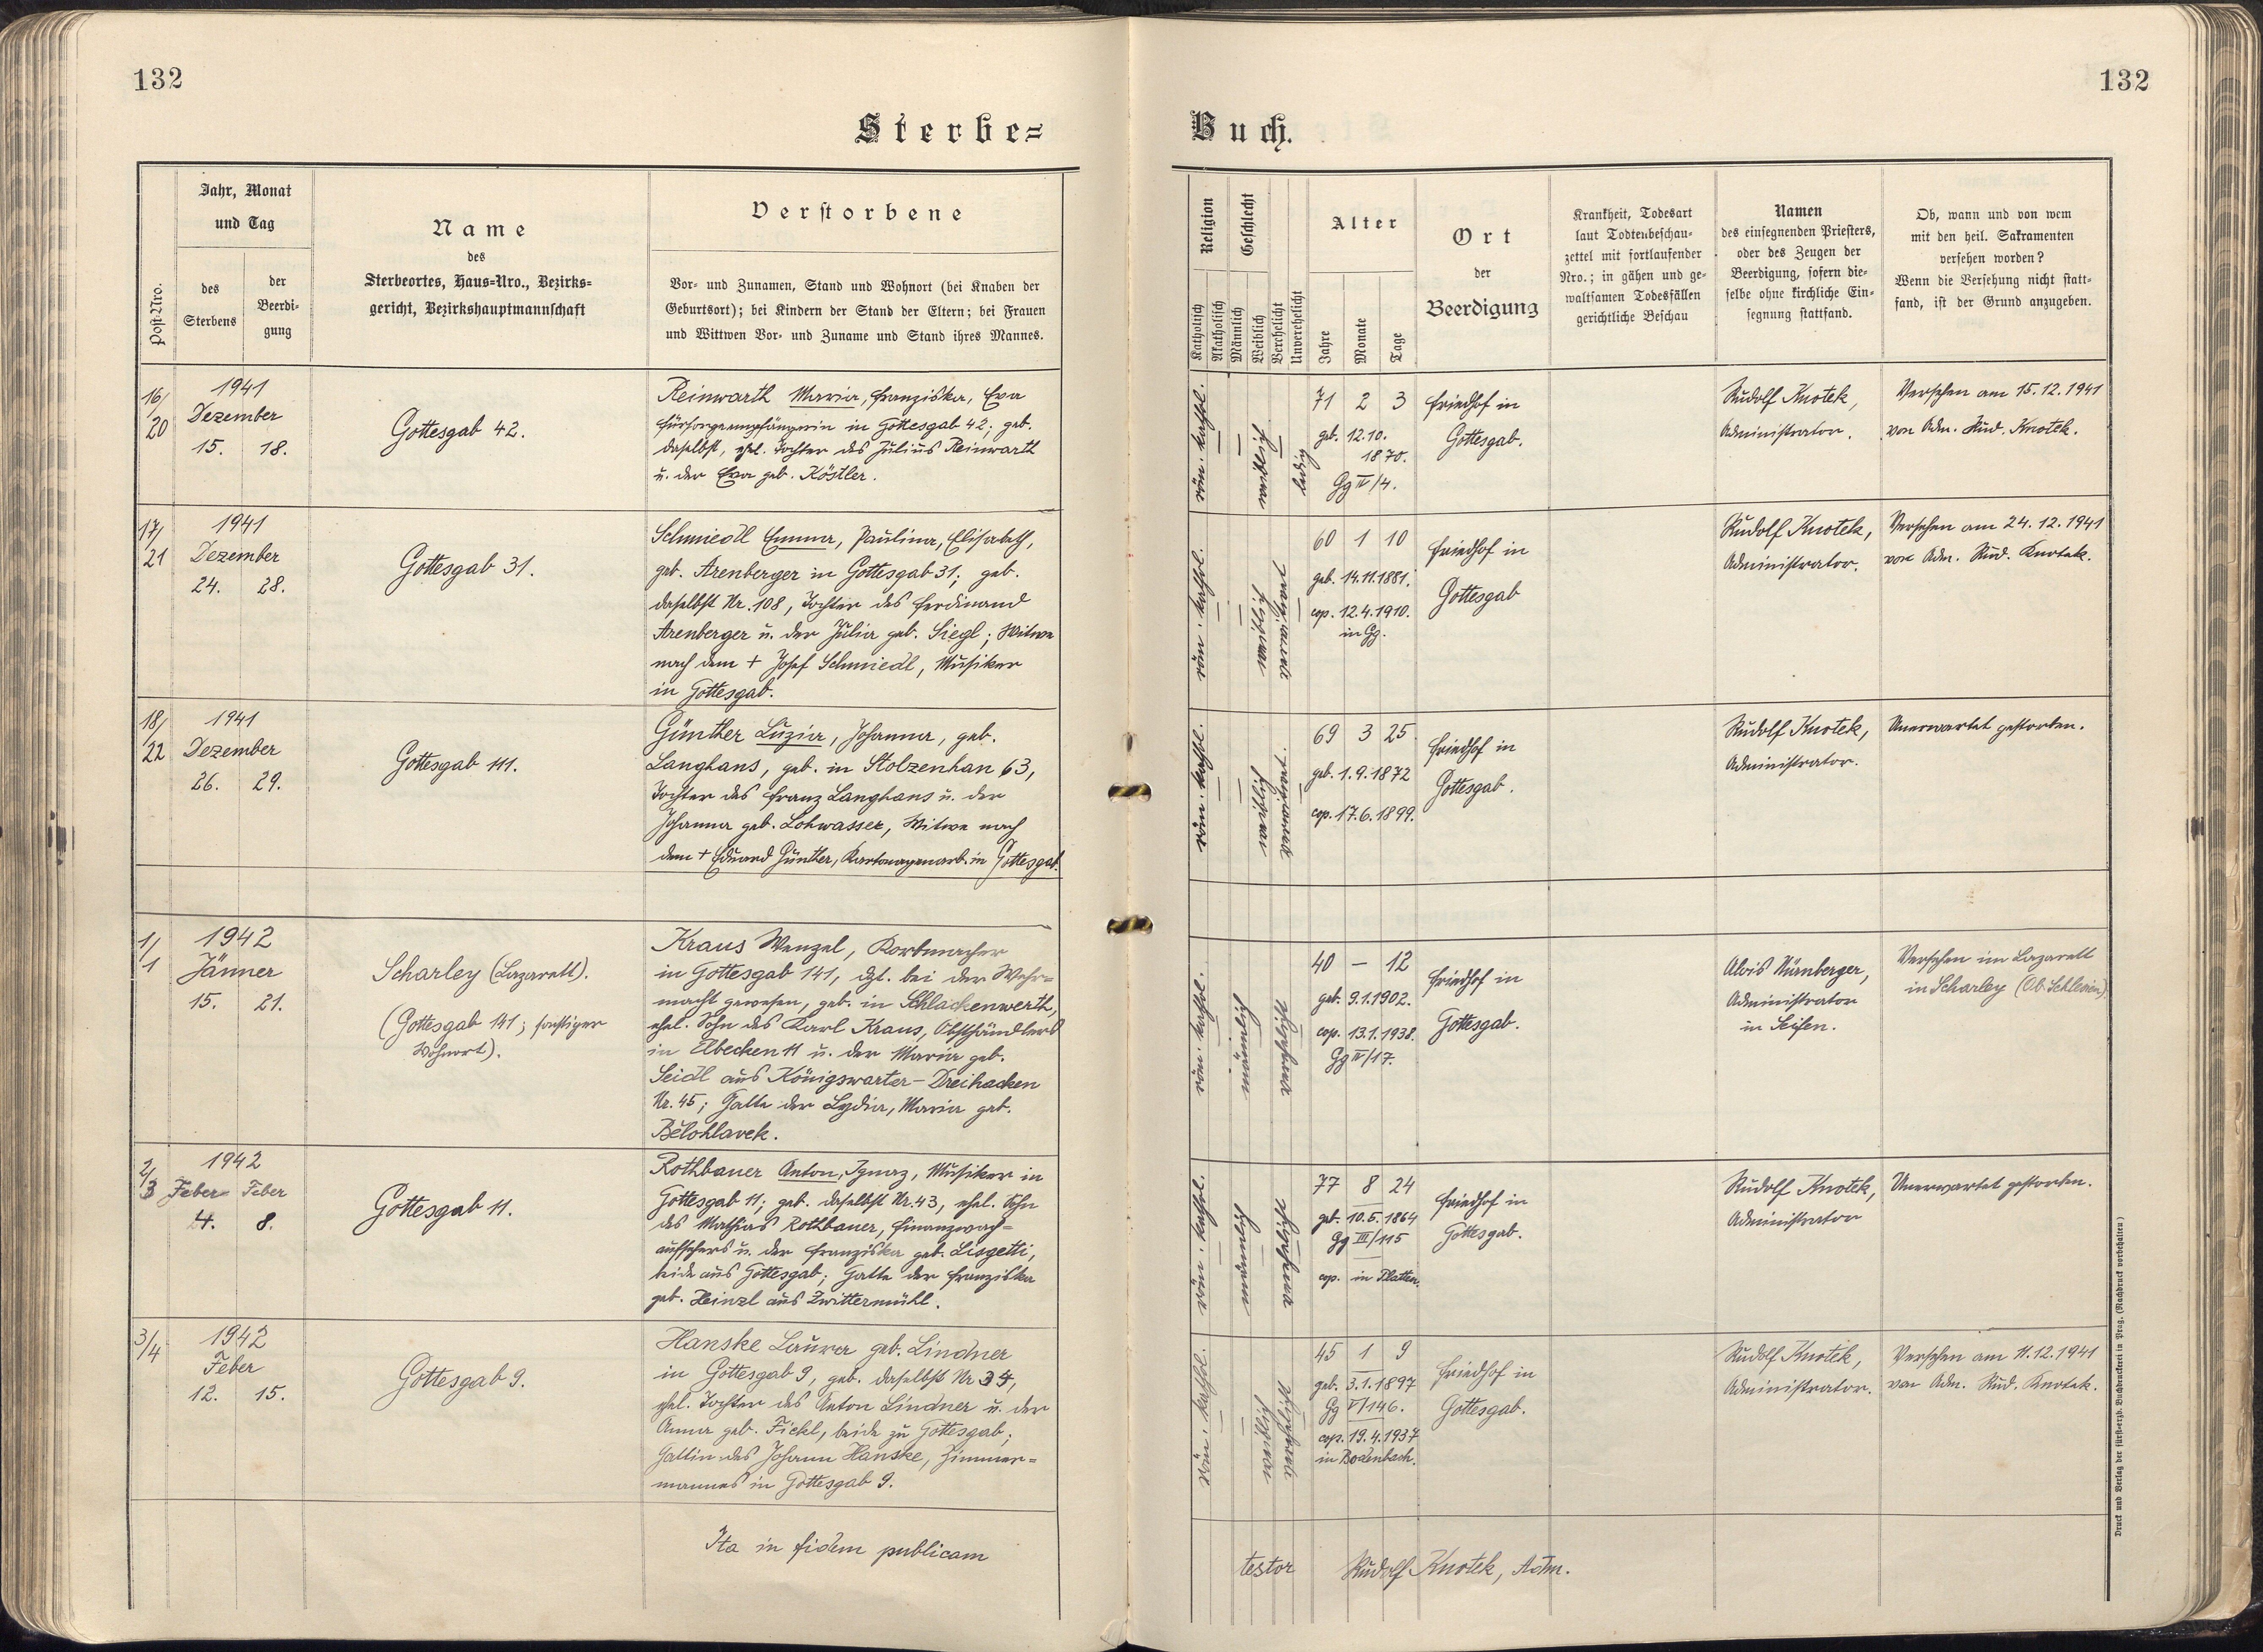 132
132
Sterbe=
Buch.
Post-Nro.
Jahr, Monat
und Tag
des
Sterbens
der
Beerdi-
gung
Name
des
Sterbeortes, Haus=Nro., Bezirks=
gericht, Bezirkshauptmannschaft
Verstorbene
Vor- und Zunamen, Stand und Wohnort (bei Knaben der
Geburtsort); bei Kindern der Stand der Eltern; bei Frauen
und Wittwen Vor- und Zuname und Stand ihres Mannes.
Religion
Katholisch
Akatholisch
Geschlecht
Männlich
Weiblich
Verehelicht
Unverehelicht
Alter
Jahre
Monate
Tage
Ort
der
Beerdigung
Krankheit, Todesart
laut Todtenbeschau-
zettel mit fortlaufender
Nro.; in gähen und ge-
waltsamen Todesfällen
gerichtliche Beschau
Namen
des einsegnenden Priesters,
oder des Zeugen der
Beerdigung, sofern die-
selbe ohne kirchliche Ein-
segnung stattfand.
Ob, wann und von wem
mit den heil. Sakramenten
versehen worden?
Wenn die Versehung nicht statt-
fand, ist der Grund anzugeben.
16/
20
1941
Dezember
15. 18.
Gottesgab 42.
Reinwarth Maria, Franziska, Eva
Fürsorgeempfängerin in Gottesgab 42; geb.
daselbst, ehel. Tochter des Julius Reinwarth
u. der Eva geb. Köstler.
röm. kathol.
weiblich
ledig
71 2 3
geb. 12.10.
1870.
Gg IV/4.
Friedhof in
Gottesgab.
Rudolf Knotek,
Administrator.
Versehen am 15.12.1941
von Adm. Rud. Knotek.
17/
21
1941
Dezember
24. 28.
Gottesgab 31.
Schmiedl Emma, Paulina, Elisabeth,
geb. Arenberger in Gottesgab 31; geb.
daselbst Nr. 108, Tochter des Ferdinand
Arenberger u. der Julia geb. Siegl; Witwe
nach dem + Josef Schmiedl, Musiker
in Gottesgab.
röm. kathol.
weiblich
verwitwet
60 1 10
geb. 14.11.1881.
cop. 12.4.1910.
in Gg.
Friedhof in
Gottesgab
Rudolf Knotek,
Administrator.
Versehen am 24.12.1941
von Adm. Rud. Knotek.
18/
22
1941
Dezember
26. 29.
Gottesgab 111.
Günther Luzia, Johanna, geb.
Langhans, geb. in Stolzenhan 63,
Tochter des Franz Langhans u. der
Johanna geb. Lohwasser, Witwe nach
dem + Eduard Günther, Kartonagenarb. in Gottesgab.
röm. kathol.
weiblich
verwitwet
69 3 25
geb. 1.9.1872
cop. 17.6.1899.
Friedhof in
Gottesgab.
Rudolf Knotek,
Administrator.
Unerwartet gestorben.
1/
1
1942
Jänner
15. 21.
Scharley (Lazarett).
(Gottesgab 141; sonstiger
Wohnort).
Kraus Wenzel, Korbmacher
in Gottesgab 141, dzt. bei der Wehr=
macht gewesen, geb. in Schlackenwerth,
ehel. Sohn des Karl Kraus, Obsthändlers
in Elbecken 11 u. der Maria geb.
Seidl aus Königswarter-Dreihacken
Nr. 45; Gatte der Lydia, Maria geb.
Bělohlavek.
röm. kathol.
männlich
verehelicht
40 — 12
geb. 9.1.1902.
cop. 13.1.1938.
Gg IV/17.
Friedhof in
Gottesgab.
Alois Nürnberger,
Administrator
in Seifen.
Versehen im Lazarett
in Scharley (Ob. Schlesien).
2/
3
1942
Feber Feber
4. 8.
Gottesgab 11.
Rothbauer Anton, Ignaz, Musiker in
Gottesgab 11; geb. daselbst Nr. 43, ehel. Sohn
des Mathias Rothbauer, Finanzwach=
aufsehers u. der Franziska geb. Lisgetti,
beide aus Gottesgab; Gatte der Franziska
geb. Heinzl aus Zwittermühl.
röm. kathol.
männlich
verehelicht
77 8 24
geb. 10.5.1864
Gg III/115
cop. in Platten.
Friedhof in
Gottesgab.
Rudolf Knotek,
Administrator
Unerwartet gestorben.
3/
4
1942
Feber
12. 15.
Gottesgab 9.
Hanske Laura geb. Lindner
in Gottesgab 9, geb. daselbst Nr 34,
ehel. Tochter des Anton Lindner u. der
Anna geb. Fickl, beide zu Gottesgab;
Gattin des Johann Hanske, Zimmer=
mannes in Gottesgab 9.
röm. kathol.
weiblich
verehelicht
45 1 9
geb. 3.1.1897
Gg V/146.
cop. 19.4.1937
in Bodenbach.
Friedhof in
Gottesgab.
Rudolf Knotek,
Administrator.
Versehen am 11.12.1941
von Adm. Rud. Knotek.
Ita in fidem publicam
testor Rudolf Knotek, Adm.
Druck und Verlag der fürsterzb. Buchdruckerei in Prag. (Nachdruck vorbehalten)